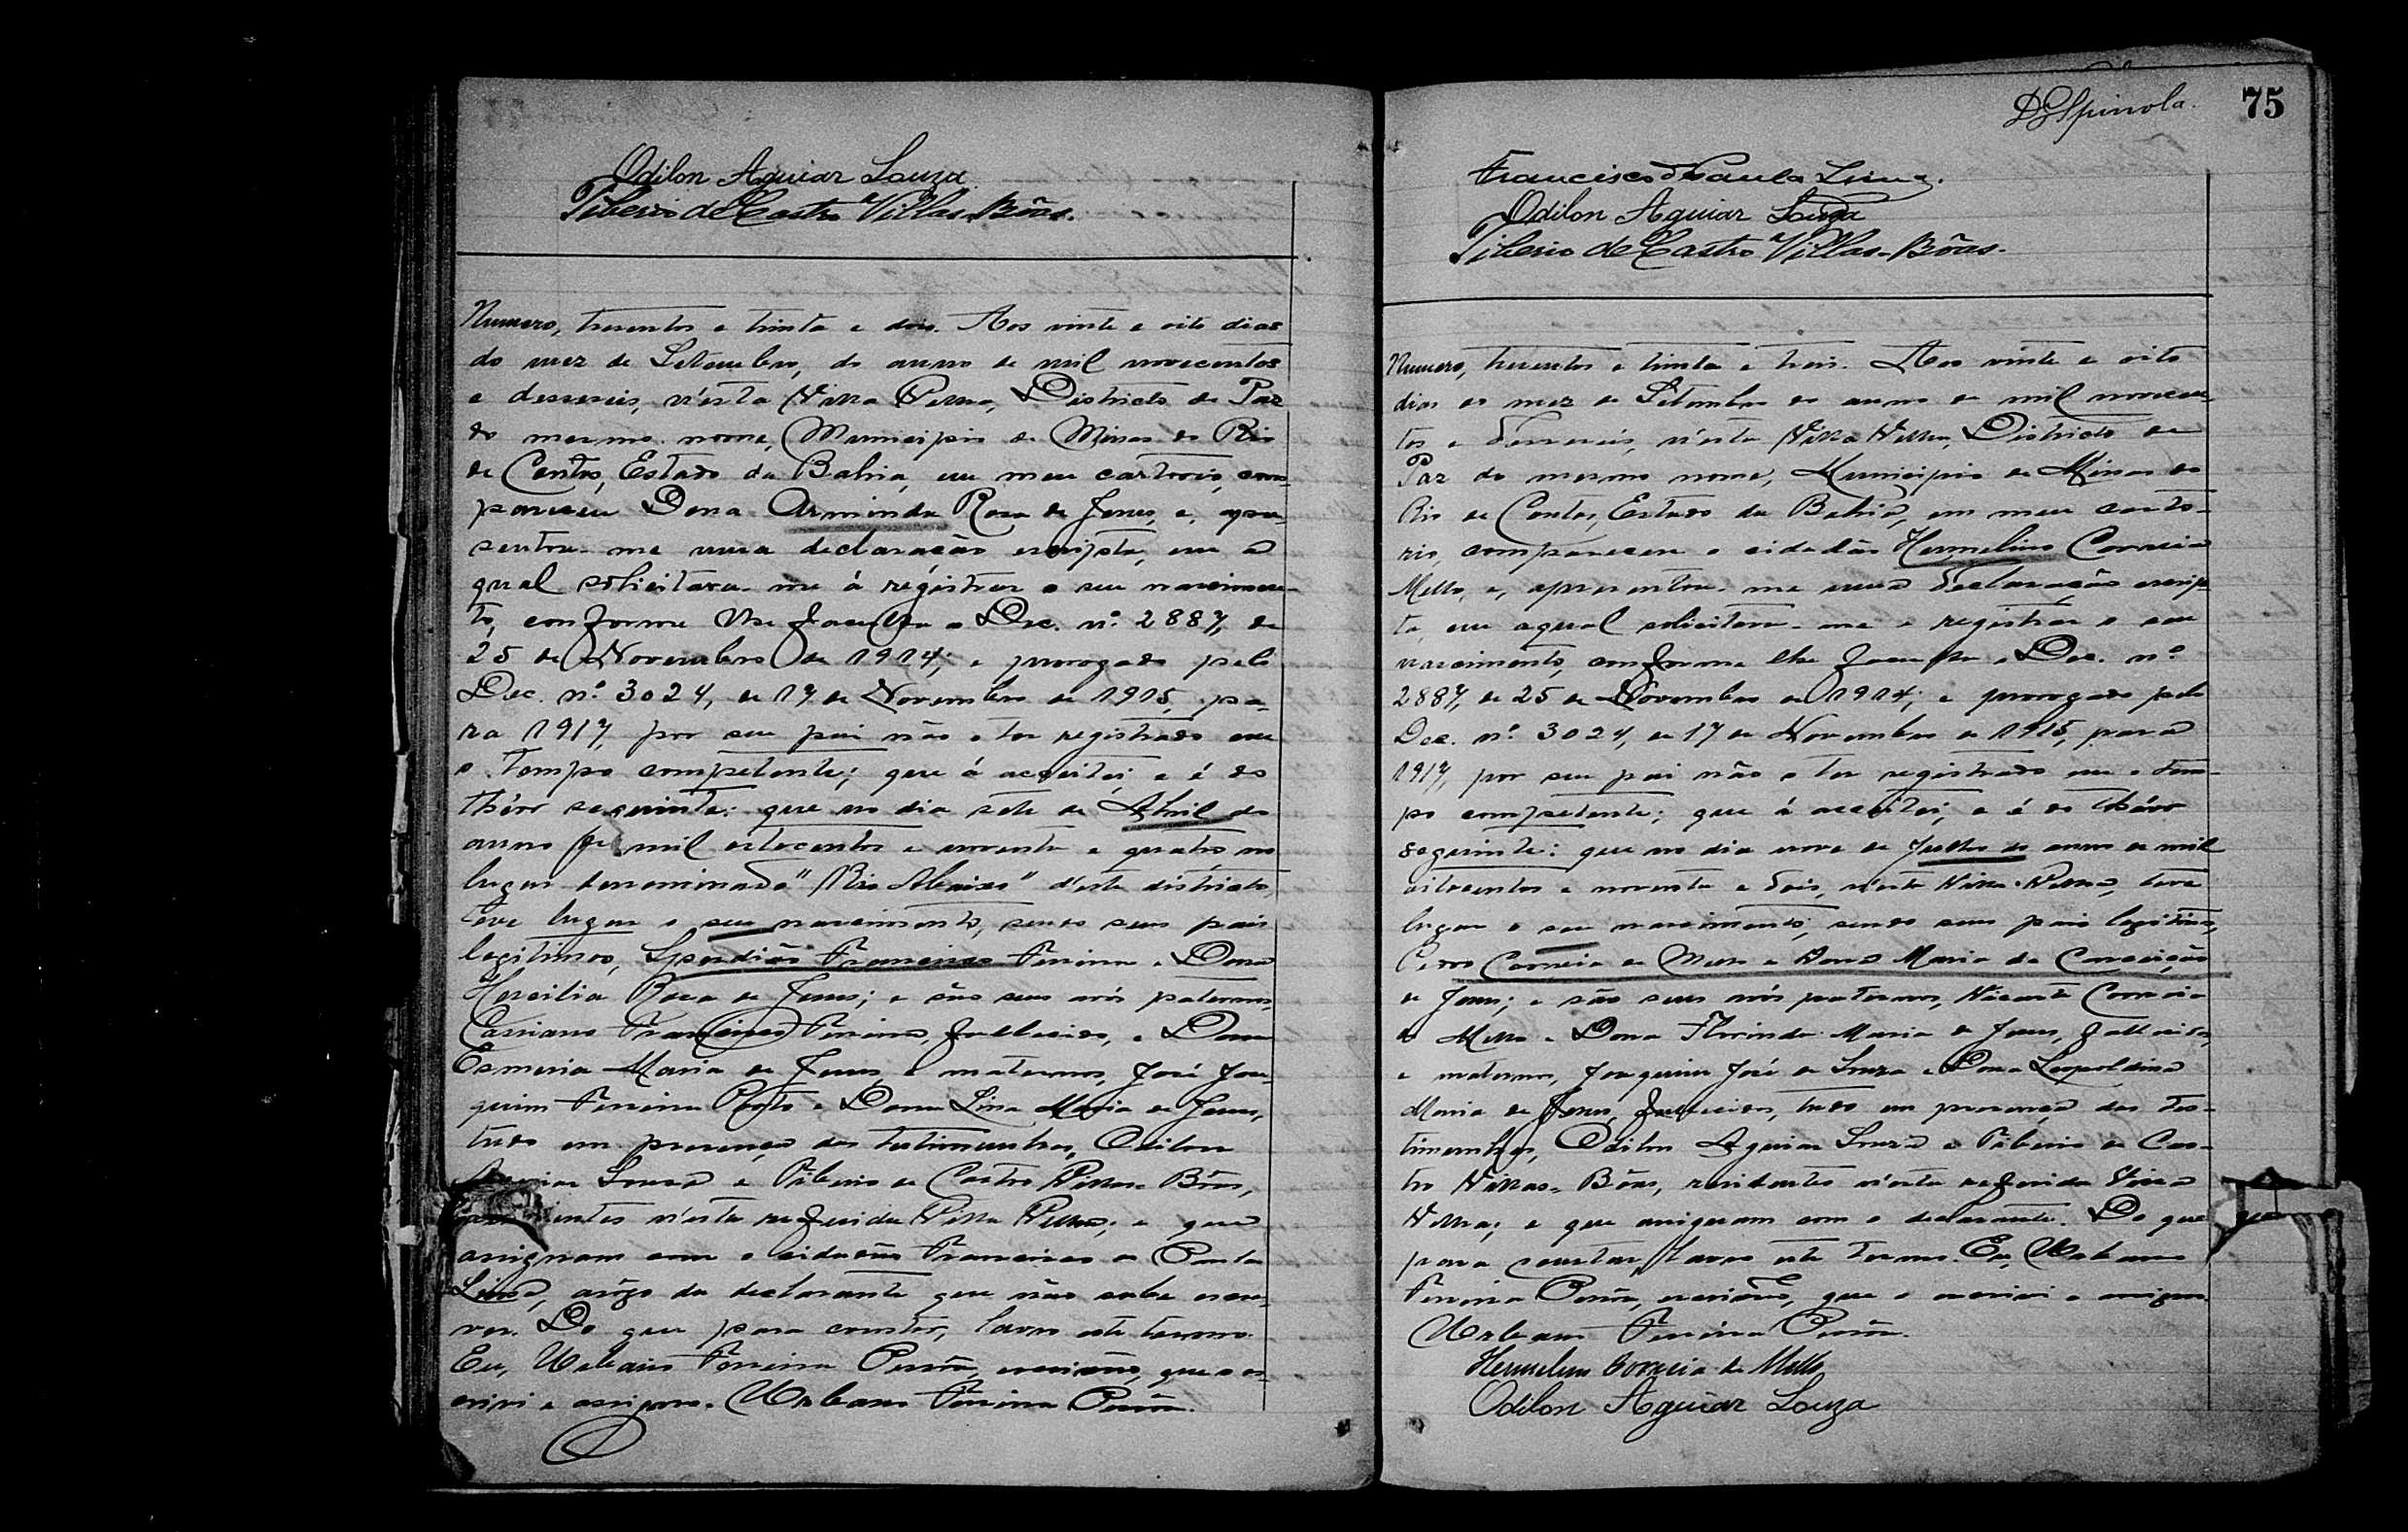 Odilon Aguiar Souza
Tiberio de Castro Villas-Bôas.
Numero, trezentos e trinta e dois. Aos vinte e oito dias
do mez de Setembro, do anno de mil novecentos
e deseseis, n'esta Villa Velha, Districto de Paz
do mesmo nome, Municipio de Minas do Rio
de Contas, Estado da Bahia, em meu cartorio, com-
pareceu Dona Arminda Rosa de Jesus, e, apre-
sentou-me uma declaração escripta, em a
qual solicitava-me á registrar o seu nascimen-
to, conforme lhe faculta o Dec. nº 2887, de
25 de Novembro de 1914; e prorogado pelo
Dec. nº 3024, de 17 de Novembro de 1915, pa-
ra 1917, por seu pai não o ter registrado em
o tempo competente; que á acceitei, e é do
thêor seguinte: que no dia sete de Abril do
anno de mil oitocentos e noventa e quatro no
lugar denominado "Rio Abaixo" d'este districto,
teve lugar o seu nascimento, sendo seus pais
legitimos, Spiridião Francisco Ferreira e Dona
Hercilia Rosa de Jesus; e são seus avós paternos,
Cassiano Francisco Ferreira, fallecido, e Dona
Esmeria Maria de Jesus, e maternos, José Joa-
quim Ferreira Porto e Dona Lina Maria de Jesus,
tudo em presença das testimunhas, Odilon
Aguiar Souza e Tiberio de Castro Villas-Bôas,
residentes n'esta referida Villa Velha; e que
assignam com o cidadão Francisco de Paula
Lima, arôgo da declarante que não sabe escre-
ver. Do que para constar, lavro este termo.
Eu, Urbano Ferreira , escrivão, que o es-
crivi e assigno. Urbano Ferreira
D Spinola.
75
Francisco de Paula Lima.
Odilon Aguiar Souza
Tiberio de Castro Villas-Bôas.
Numero, trezentos e trinta e trez. Aos vinte e oito
dias do mez de Setembro do anno de mil novecen-
tos e deseseis, n'esta Villa Velha, Districto de
Paz do mesmo nome, Municipio de Minas do
Rio de Contas, Estado da Bahia, em meu carto-
rio, compareceu o cidadão Hermelino Correia
Mello, e, apresentou-me uma declaração escrip-
ta, em aqual solicitava-me a registrar o seu
nascimento, conforme lhe faculta o Dec. nº
2887, de 25 de Novembro de 1914; e prorogado pelo
Dec. nº 3024, de 17 de Novembro de 1915, para
1917, por seu pai não o ter registrado em o tem-
po competente; que á acceitei, e é do thêor
seguinte: que no dia nove de Julho do anno de mil
oitocentos e noventa e dois, n'esta Villa-Velha, teve
lugar o seu nascimento, sendo seus pais legitimos,
Correia de Mello e Dona Maria da Conceição
de Jesus; e são seus avós paternos, Vicente Correia
de Mello e Dona Florinda Maria de Jesus, fallecidos,
e maternos, Joaquim José de Souza e Dona Leopoldina
Maria de Jesus, fallecidos, tudo em presença das tes-
timunhas, Odilon Aguiar Souza e Tiberio de Cas-
tro Villas-Bôas, residentes n'esta referida Villa
Velha; e que assignam com o declarante. Do que
para constar, lavro este termo. Eu, Urbano
Ferreira , escrivão, que o escrivi e assigno.
Urbano Ferreira
Hermelino Correia de Mello
Odilon Aguiar Souza